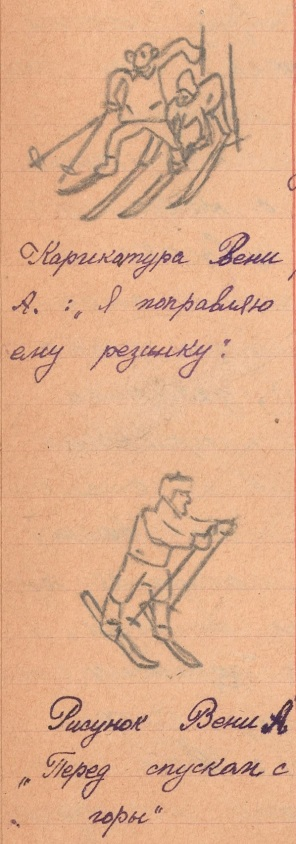 Карикатура Вени
А. : „Я поправляю
ему резинку“.
Рисунок Вени А
„Перед спускам с
горы“